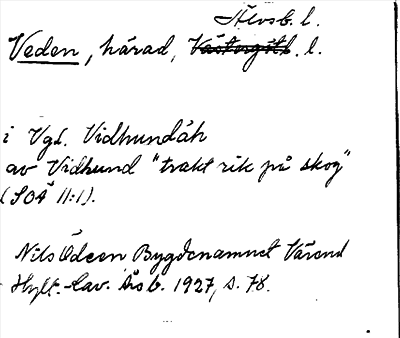 Älvsb. l.
Veden, härad, Västergötl. l.
i Vgd. Vidhundåh
av Vidhund "trakt rik på skog"
(SOÄ 11:1).
Nils Ödeen Bygdenamnet Värend
Hylt.-Cav. Årsb. 1927, s. 78.